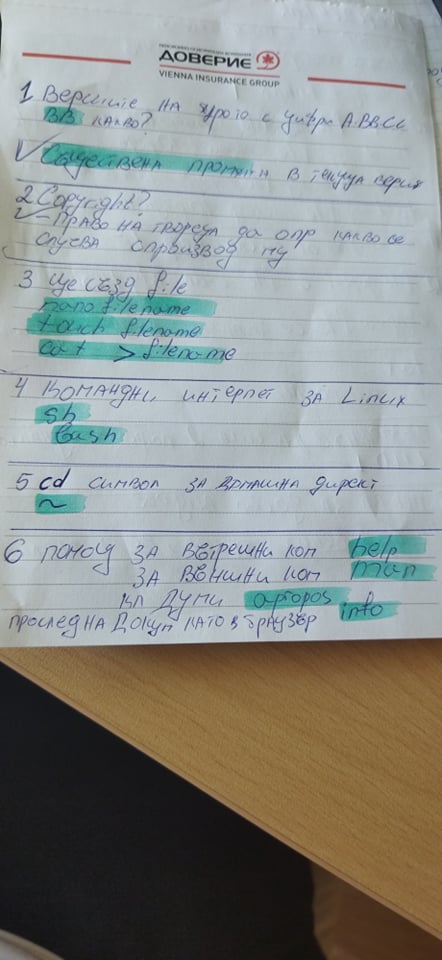 ПЕНСИОННООСИГУРИТЕЛНА КОМПАНИЯ
ДОВЕРИЕ
VIENNA INSURANCE GROUP
1 Версиите на ядрото с цифри A.BB.CC
BB какво?
✓ Съществена промяна в текуща версия
2 Copyright?
✓ - Право на твореца да опр какво се
случва с произвед му
3 ще създ file
nano filename
touch filename
cat > filename
4 Командни интерпет за Linux
sh
bash
5 cd символ за домашна директ
~
6 помощ за вътрешни ком help
за външни ком man
кл думи apropos
проследна докум като в браузър info